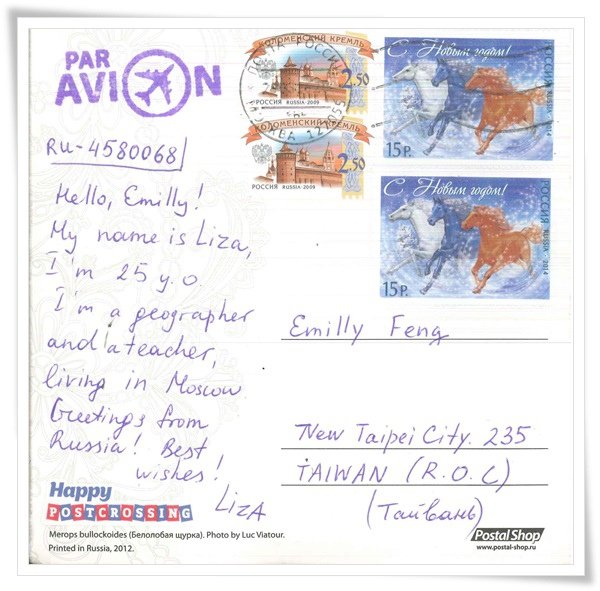 PAR
AVION
RU-4580068
Hello, Emilly!
My name is Liza,
I'm 25 y.o.
I'm a geographer
and a teacher,
living in Moscow
Greetings from
Russia! Best
wishes!
LIZA
Happy
POSTCROSSING
Merops bullockoides (Белолобая щурка). Photo by Luc Viatour.
Printed in Russia, 2012.
КОЛОМЕНСКИЙ КРЕМЛЬ
2.50
РОССИЯ RUSSIA·2009
КОЛОМЕНСКИЙ КРЕМЛЬ
2.50
РОССИЯ RUSSIA·2009
ПОЧТА РОССИИ
С Новым годом!
РОССИЯ RUSSIA · 2014
15 Р.
С Новым годом!
РОССИЯ RUSSIA · 2014
15 Р.
Emilly Feng
New Taipei City. 235
TAIWAN (R.O.C)
(Тайвань)
PostalShop
www.postal-shop.ru